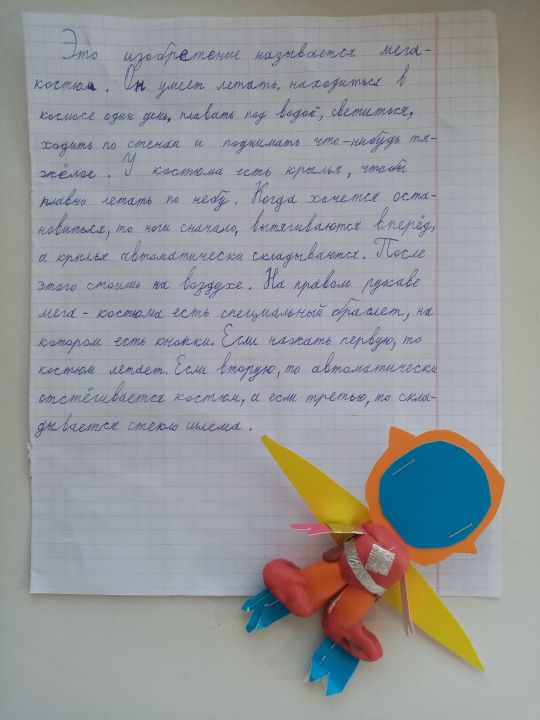 Это изобретение называется мега-
костюм. Он умеет летать, находиться в
космосе один день, плавать под водой, светиться,
ходить по стенам и поднимать что-нибудь тя-
жёлое. У костюма есть крылья, чтобы
плавно летать по небу. Когда хочется оста-
новиться, то ноги сначало, вытягиваются вперёд,
а крылья автоматически складываются. После
этого стоишь на воздухе. На правом рукаве
мега-костюма есть специальный браслет, на
котором есть кнопки. Если нажать первую, то
костюм летает. Если вторую, то автоматически
отстёгивается костюм, а если третью, то скла-
дывается стекло шлема.